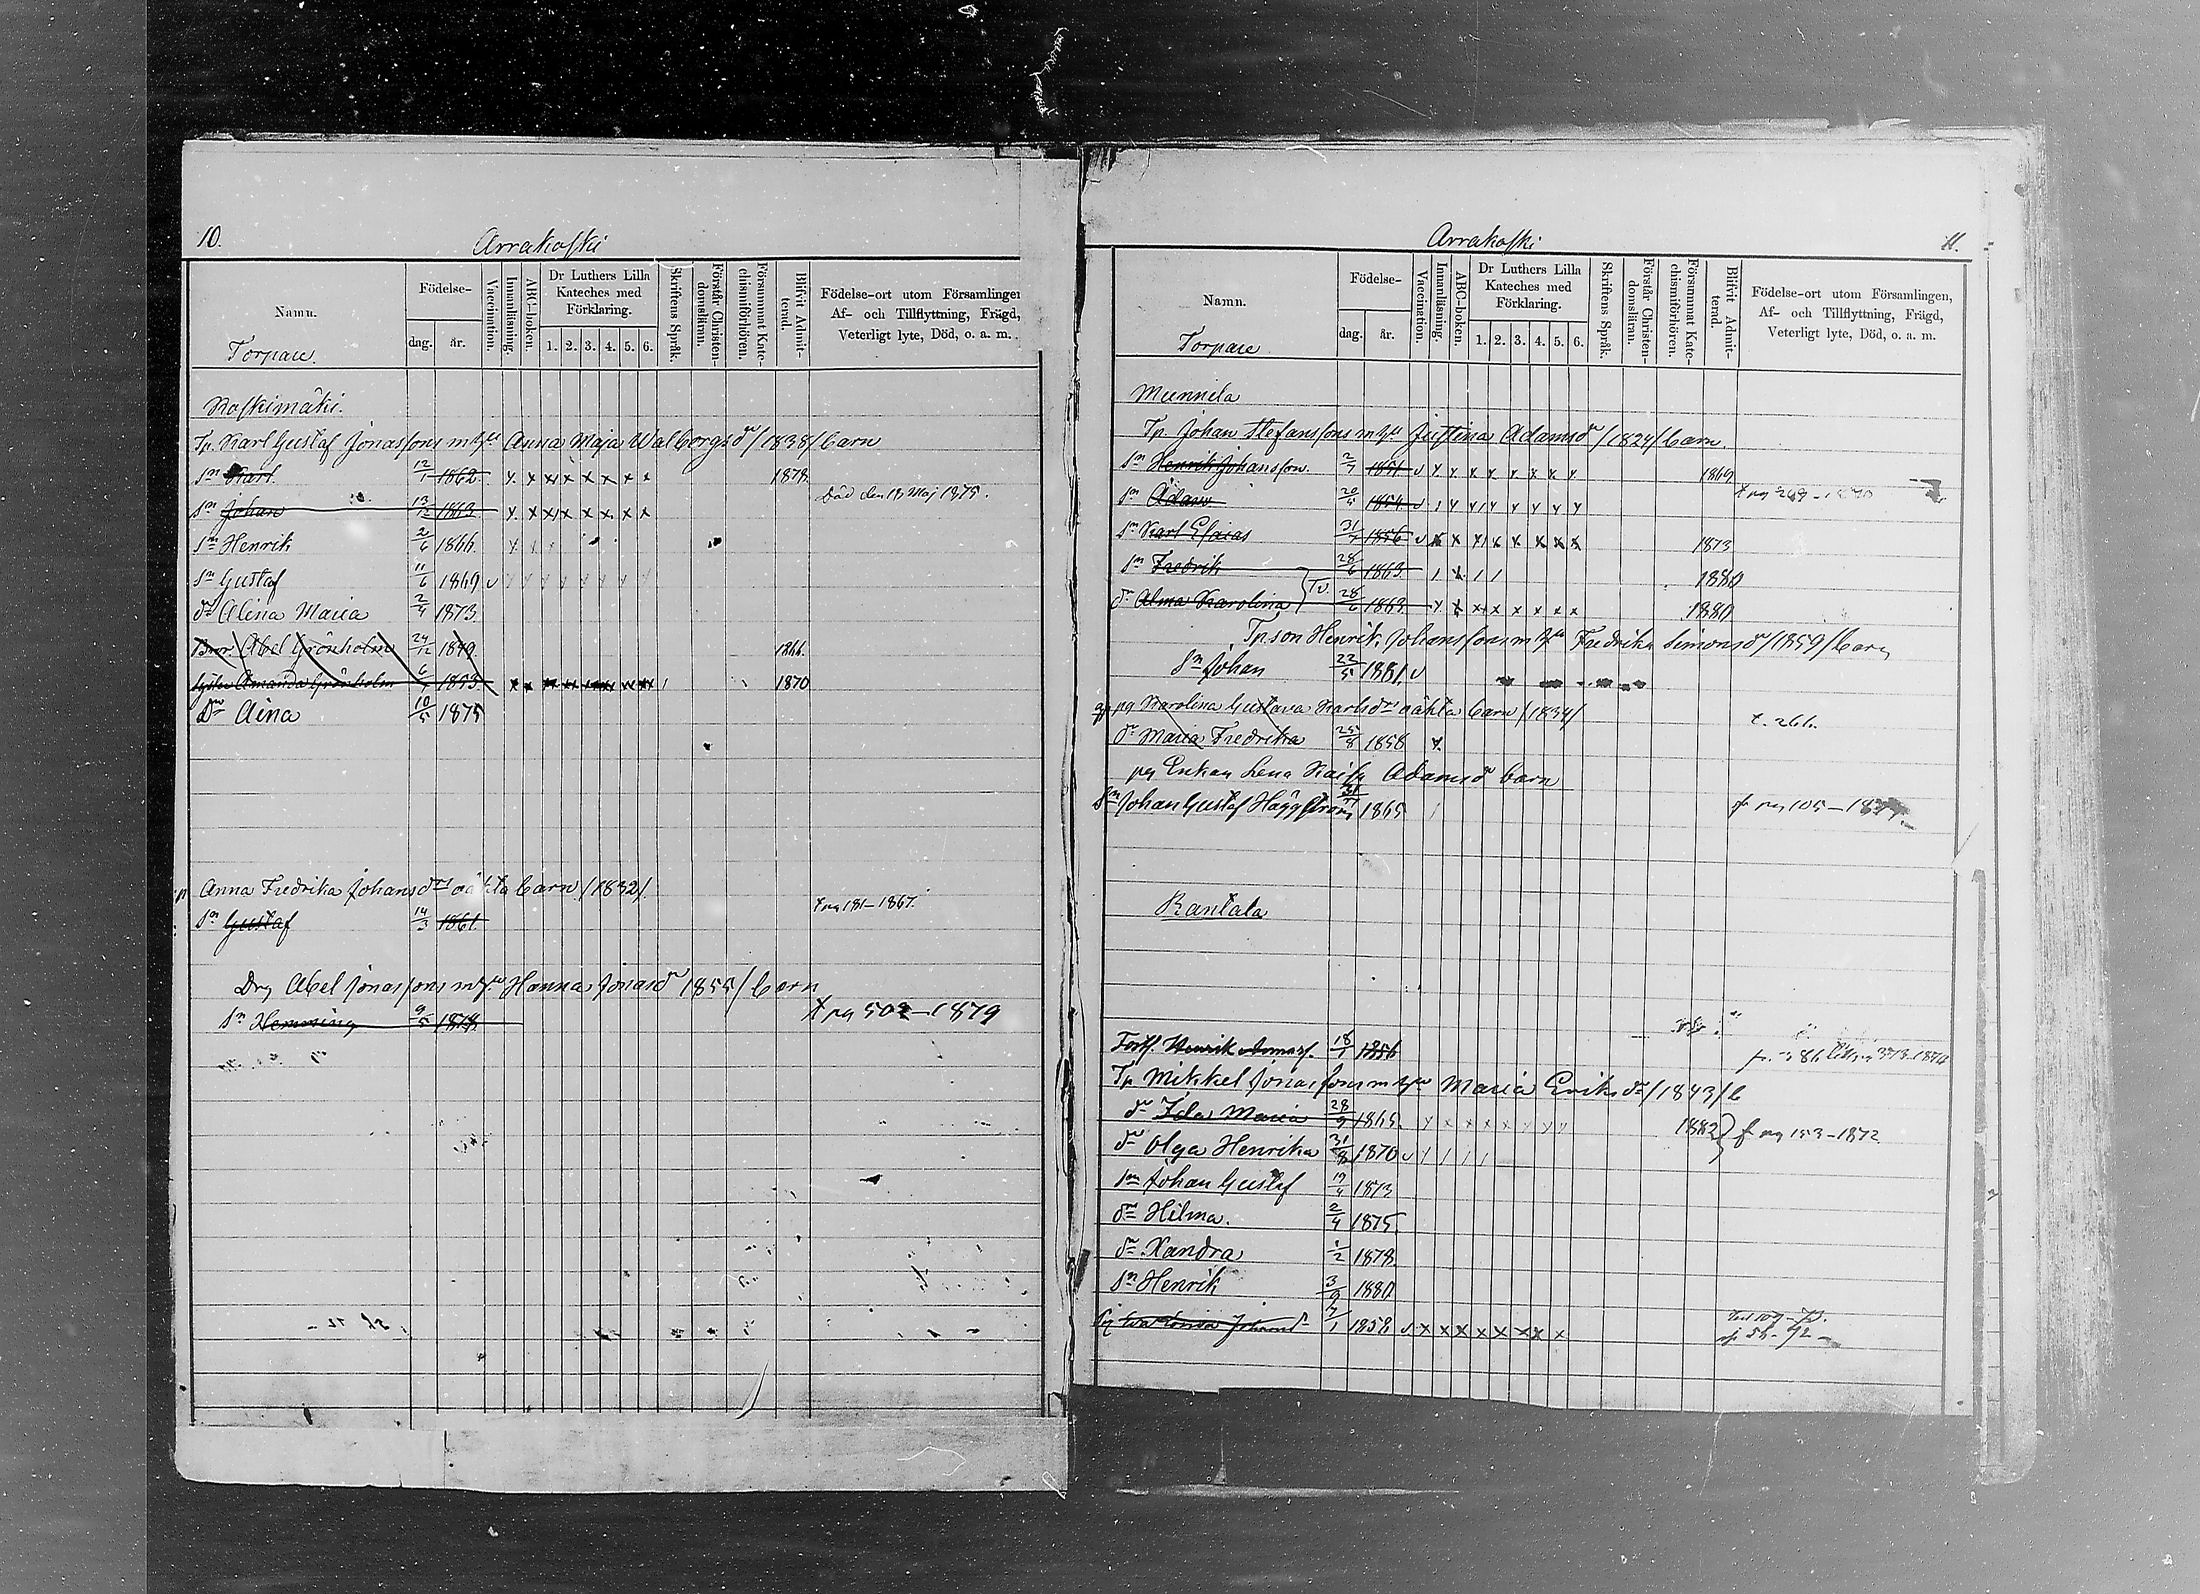 10.
Arrakoski
Namn.
Födelse-
dag.
år.
Vaccination.
Innanläsning.
ABC-boken.
Dr Luthers Lilla Kateches med Förklaring.
1. 2. 3. 4. 5. 6.
Skriftens Språk.
Förstår Christendomsläran.
Försummat Katechismiförhören.
Blifvit Admitterad.
Födelse-ort utom Församlingen
Af- och Tillflyttning, Frägd,
Veterligt lyte, Död, o. a. m.
Torpare.
Koskimäki.
Tp. Karl Gustaf Jonassons m hu Anna Maja Walborgsdr /1838/ barn
Sn Karl 12/1 1862. y x x x x x x x 1878.
Sn Johan 13/12 1863. y x x x x x x x Död den 18 Maj 1875.
Sn Henrik 2/6 1866.
Sn Gustaf 11/6 1869 v y y y y y y y y
Dr Alina Maria 2/4 1873.
Bror Abel Grönholm 24/12 1849. 1866.
Syster Amanda Grönholm 6/7 1853. x x x x x x x x 1870
Dr Aina 10/5 1875
Anna Fredrika Johansdrs oäkta barn /1832/.
Sn Gustaf 14/3 1861. t pg 181-1867.
Drg Abel Jonassons m hu Hanna Jonasdr 1855/ barn
Sn Hemming 9/5 1878. t pg 502-1879
Arrakoski
11.
Namn.
Födelse-
dag.
år.
Vaccination.
Innanläsning.
ABC-boken.
Dr Luthers Lilla Kateches med Förklaring.
1. 2. 3. 4. 5. 6.
Skriftens Språk.
Förstår Christendomsläran.
Försummat Katechismiförhören.
Blifvit Admitterad.
Födelse-ort utom Församlingen,
Af- och Tillflyttning, Frägd,
Veterligt lyte, Död, o. a. m.
Torpare
Munnila
Tp. Johan Stefanssons m hu Justina Adamsdr /1824/ barn.
Sn Henrik Johansson. 2/7 1851. v y y x x y x x y 1869
Sn Adam 20/5 1854 v
Sn Karl Efraias 31/7 1856 v x x x x x x x x 1873
Sn Fredrik 28/6 1863. 1880
Tv.
Dr Alma Karolina 28/6 1863. y x x x x x x x 1880
Tp.son Henrik Johanssons m hu Fredrika Simonsdr /1859/ barn
Sn Johan 22/5 1881. v
pg Karolina Gustava Karlsdrs oäkta barn /1834/ t. 266.
Dr Maria Fredrika 25/8 1858 y.
pg Enkan Lena Kaisa Adamsdr barn
Sn Johan Gustaf Häggström 1865 fr pg 105-
Rantala
Henrik 18/1 1856
Tp Mikkel Jonassons m hu Maria Eriksdr /1843/ b
Dr Ida Maria 28/9 1865. y x x x x y y y 1882
fr pg 153-1872
Dr Olga Henrika 31/8 1870 v
Sn Johan Gustaf 19/4 1873
Dr Hilma. 2/4 1875.
Dr Xandra 1/2 1878.
Sn Henrik 3/9 1880
1858 v x x x x x x x x